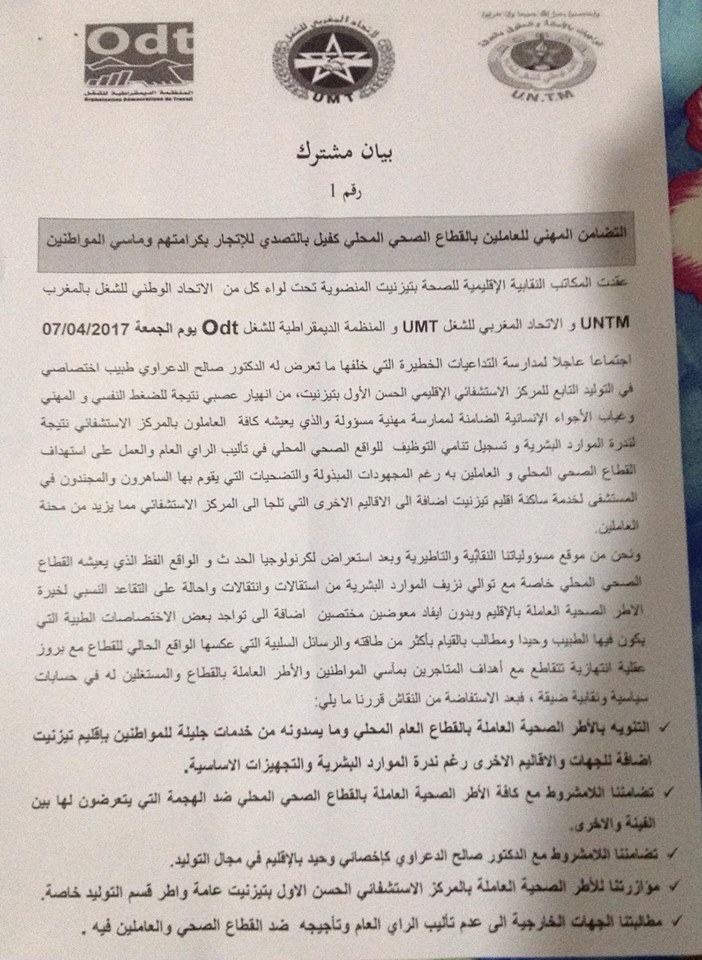 Odt
المنظمة الديمقراطية للشغل
Organisation Démocratique du Travail
الاتحاد المغربي للشغل
UMT
U.N.T.M
بيان مشترك
رقم 1
التضامن المهني للعاملين بالقطاع الصحي المحلي كفيل بالتصدي للإتجار بكرامتهم وماسي المواطنين
عقدت المكاتب النقابية الإقليمية للصحة بتيزنيت المنضوية تحت لواء كل من الاتحاد الوطني للشغل بالمغرب
UNTM و الاتحاد المغربي للشغل UMT و المنظمة الديمقراطية للشغل Odt يوم الجمعة 07/04/2017
اجتماعا عاجلا لمدارسة التداعيات الخطيرة التي خلفها ما تعرض له الدكتور صالح الدعراوي طبيب اختصاصي
في التوليد التابع للمركز الاستشفائي الإقليمي الحسن الأول بتيزنيت، من انهيار عصبي نتيجة للضغط النفسي و المهني
وغياب الأجواء الإنسانية الضامنة لممارسة مهنية مسؤولة والذي يعيشه كافة العاملون بالمركز الاستشفائي نتيجة
لندرة الموارد البشرية و تسجيل تنامي التوظيف للواقع الصحي المحلي في تأليب الراي العام والعمل على استهداف
القطاع الصحي المحلي و العاملين به رغم المجهودات المبذولة والتضحيات التي يقوم بها الساهرون والمجندون في
المستشفى لخدمة ساكنة اقليم تيزنيت اضافة الى الاقاليم الاخرى التي تلجا الى المركز الاستشفائي مما يزيد من محنة
العاملين.
ونحن من موقع مسؤولياتنا النقابية والتاطيرية وبعد استعراض لكرنولوجيا الحد ث و الواقع الفظ الذي يعيشه القطاع
الصحي المحلي خاصة مع توالي نزيف الموارد البشرية من استقالات وانتقالات واحالة على التقاعد النسبي لخيرة
الاطر الصحية العاملة بالإقليم وبدون ايفاد معوضين مختصين اضافة الى تواجد بعض الاختصاصات الطبية التي
يكون فيها الطبيب وحيدا ومطالب بالقيام بأكثر من طاقته والرسائل السلبية التي عكسها الواقع الحالي للقطاع مع بروز
عقلية انتهازية تتقاطع مع أهداف المتاجرين بمأسي المواطنين والأطر العاملة بالقطاع والمستغلين له في حسابات
سياسية ونقابية ضيقة ، فبعد الاستفاضة من النقاش قررنا ما يلي:
✓ التنويه بالأطر الصحية العاملة بالقطاع العام المحلي وما يسدونه من خدمات جليلة للمواطنين بإقليم تيزنيت
اضافة للجهات والاقاليم الاخرى رغم ندرة الموارد البشرية والتجهيزات الاساسية.
✓ تضامننا اللامشروط مع كافة الأطر الصحية العاملة بالقطاع الصحي المحلي ضد الهجمة التي يتعرضون لها بين
الفينة والاخرى.
✓ تضامننا اللامشروط مع الدكتور صالح الدعراوي كإخصائي وحيد بالإقليم في مجال التوليد.
✓ مؤازرتنا للأطر الصحية العاملة بالمركز الاستشفائي الحسن الاول بتيزنيت عامة واطر قسم التوليد خاصة.
✓ مطالبتنا الجهات الخارجية الى عدم تأليب الراي العام وتأجيجه ضد القطاع الصحي والعاملين فيه .